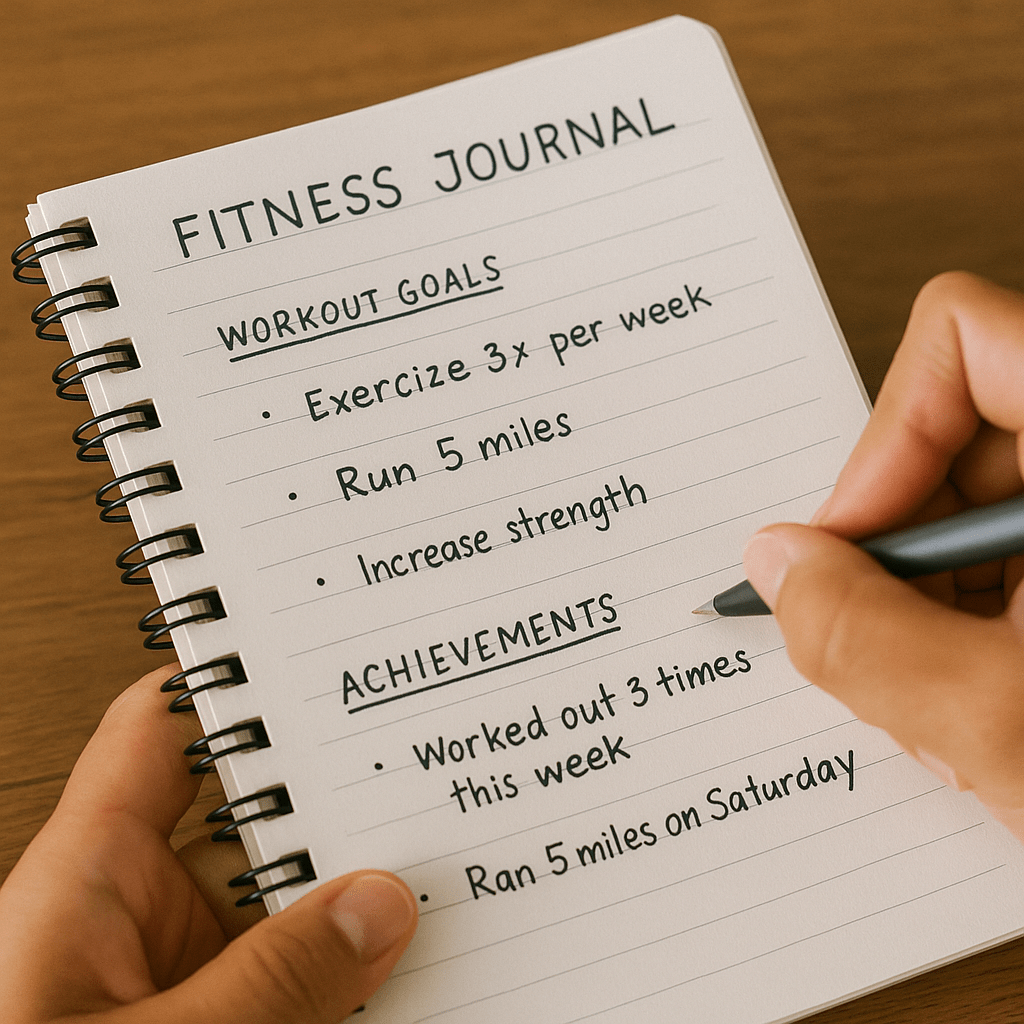 FITNESS JOURNAL
WORKOUT GOALS
• Exercize 3x per week
• Run 5 miles
• Increase strength
ACHIEVEMENTS
• Worked out 3 times
this week
• Ran 5 miles on Saturday